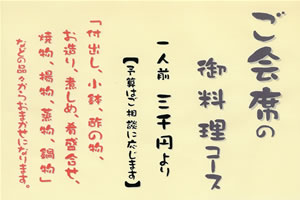 ご会席の
御料理コース
一人前 三千円より
【予算はご相談に応じます】
「付出し、小鉢、酢の物、
お造り、煮しめ、肴盛合せ、
焼物、揚物、蒸物、鍋物」
などの品々がつおまかせになります。